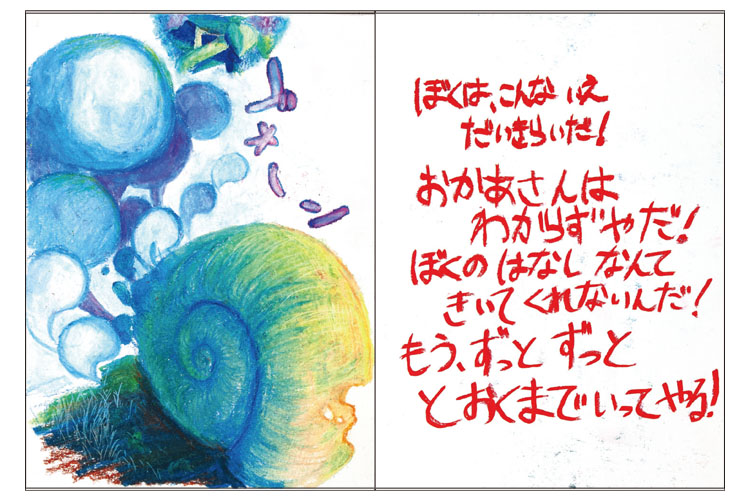 ぼくは、こんな いえ
だいきらいだ!
おかあさんは
わからずやだ!
ぼくの はなし なんて
きいて くれないんだ!
もう、ずっと ずっと
とおくまで いって やる!